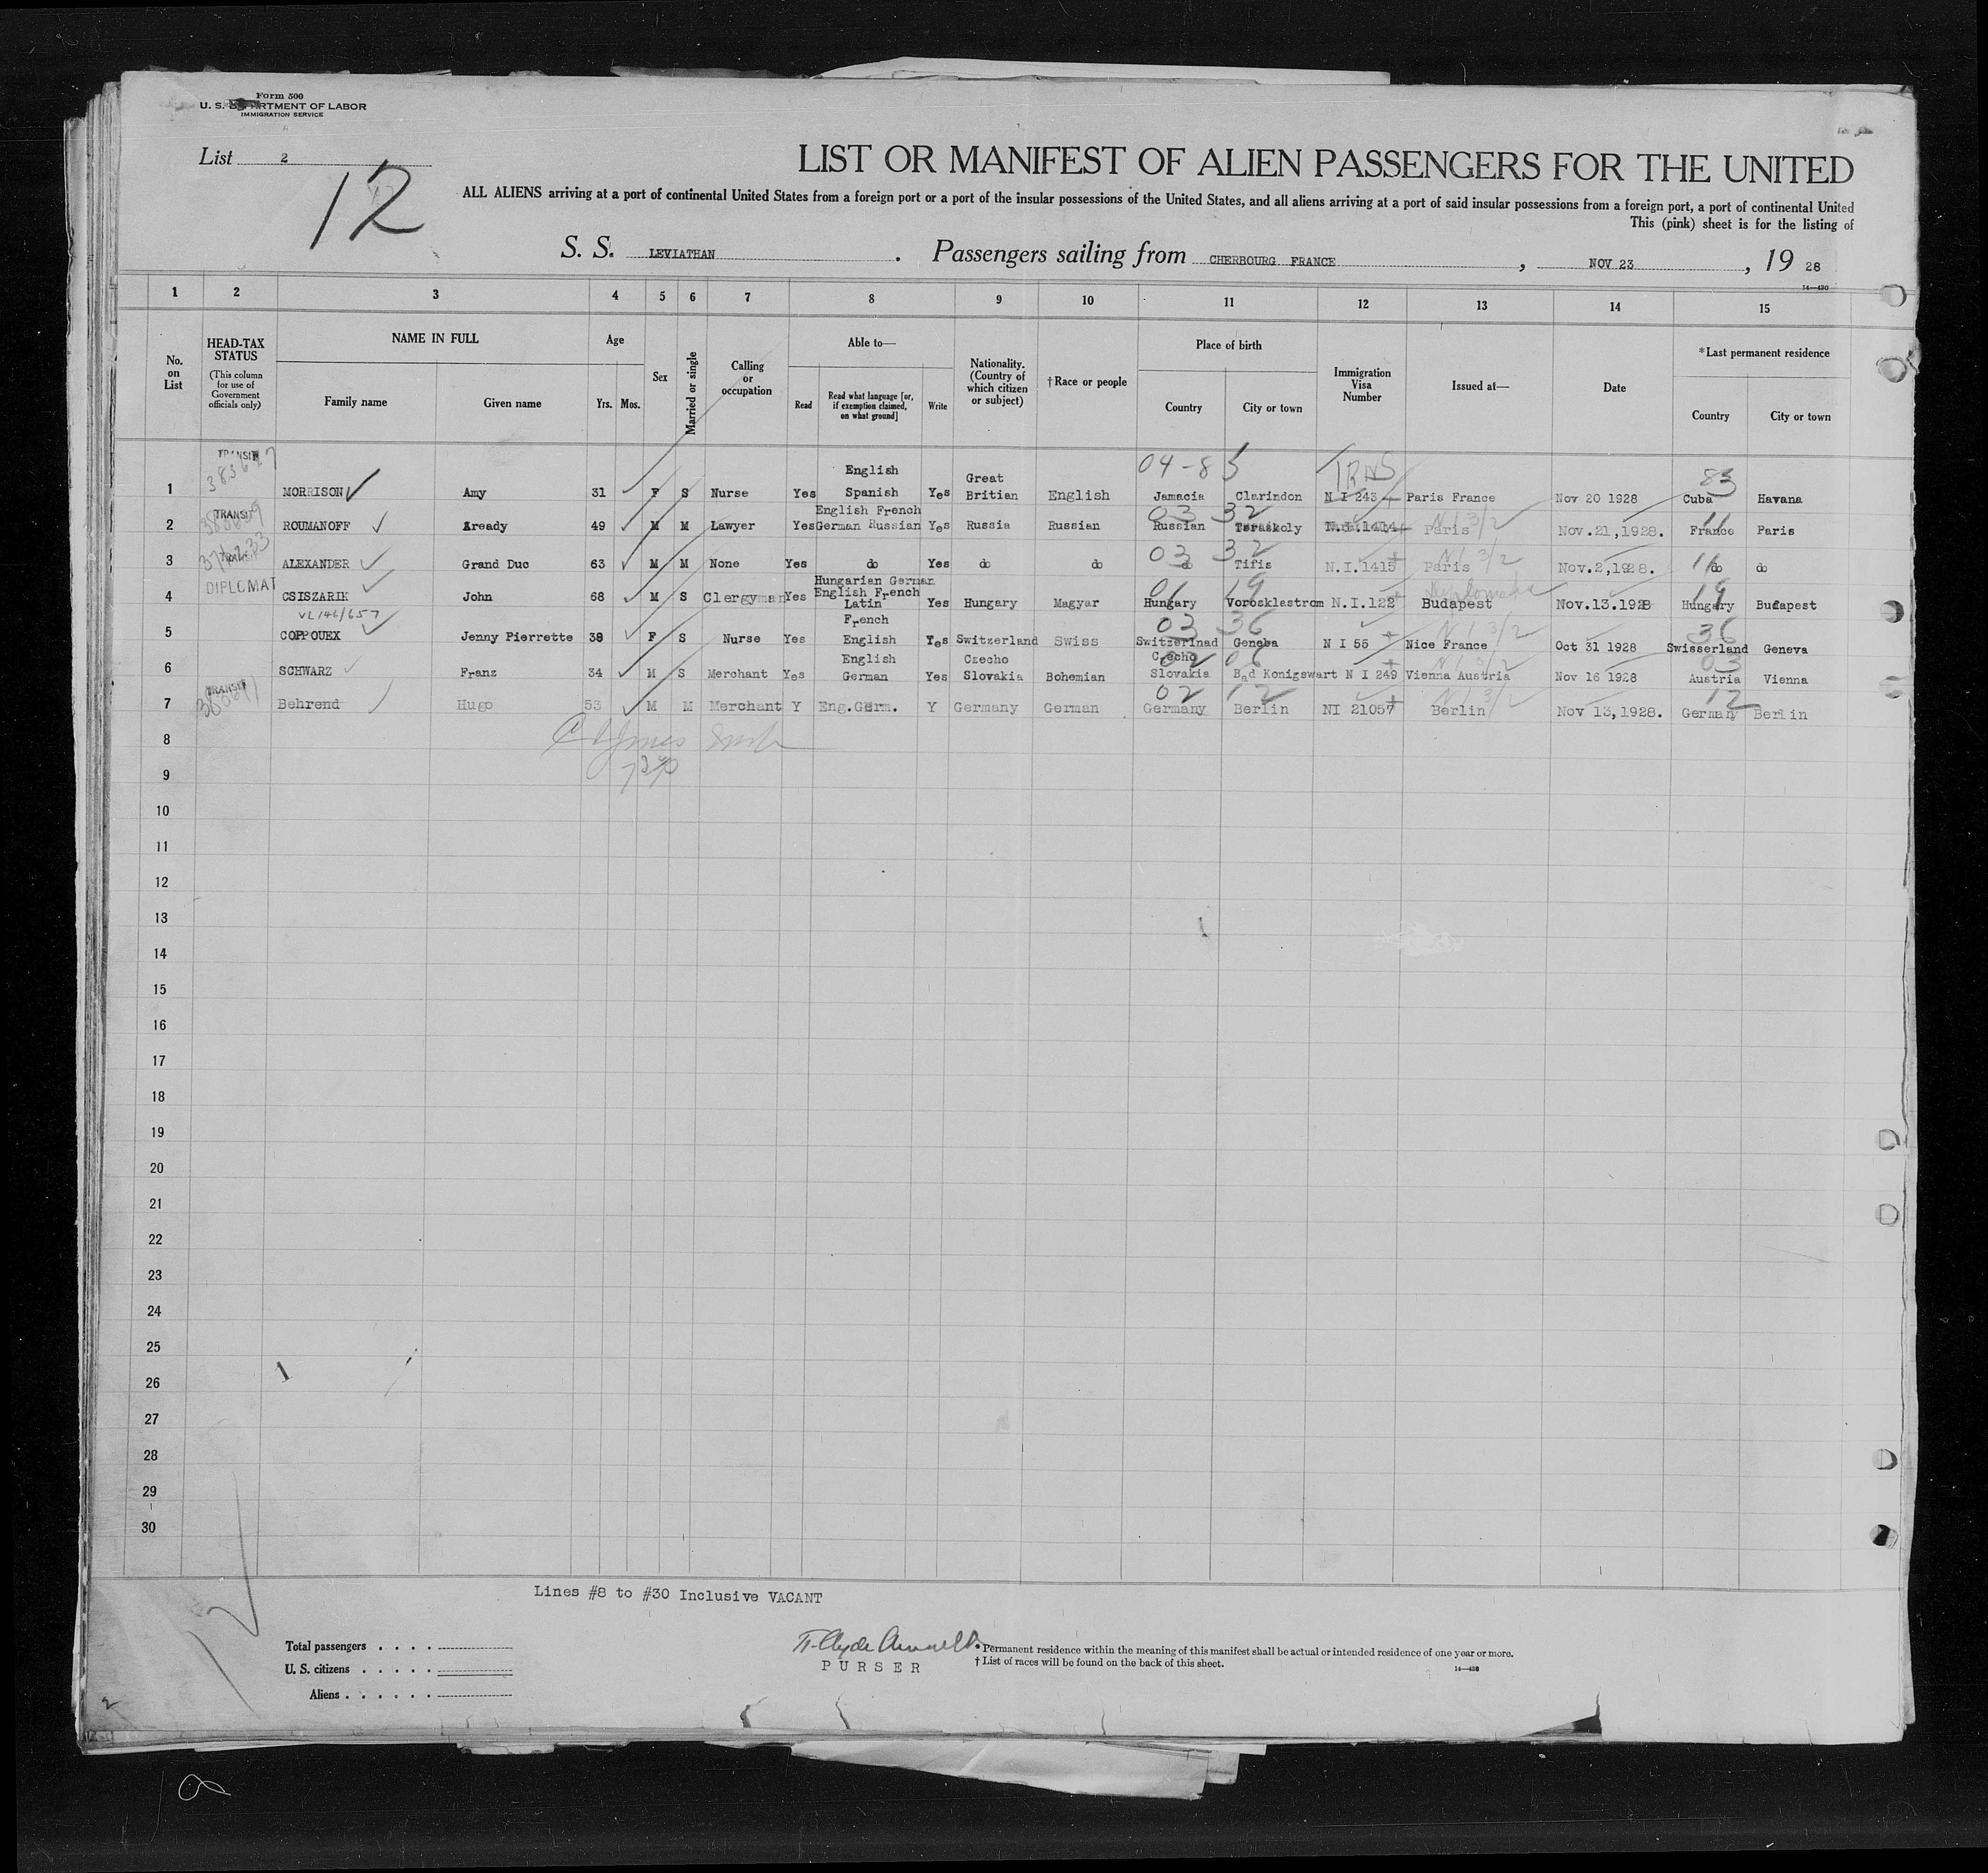 Form 500
U. S. DEPARTMENT OF LABOR
IMMIGRATION SERVICE
List 2
12
LIST OR MANIFEST OF ALIEN PASSENGERS FOR THE UNITED
ALL ALIENS arriving at a port of continental United States from a foreign port or a port of the insular possessions of the United States, and all aliens arriving at a port of said insular possessions from a foreign port, a port of continental United
This (pink) sheet is for the listing of
S. S. LEVIATHAN . Passengers sailing from CHERBOURG FRANCE , NOV 23 , 19 28
14—430
1 2 3 4 5 6 7 8 9 10 11 12 13 14 15
No. on List
HEAD-TAX STATUS
(This column for use of Government officials only)
NAME IN FULL
Family name Given name
Age
Yrs. Mos.
Sex
Married or single
Calling or occupation
Able to—
Read Read what language [or, if exemption claimed, on what ground] Write
Nationality. (Country of which citizen or subject)
†Race or people
Place of birth
Country City or town
Immigration Visa Number
Issued at—
Date
*Last permanent residence
Country City or town
TRANSIT
04-85 83
1 MORRISON Amy 31 F S Nurse Yes English Spanish Yes Great Britian English Jamacia Clarindon N I 243 Paris France Nov 20 1928 Cuba Havana
TRANSIT
03 32 N I 3/2 11
2 ROUMANOFF Aready 49 M M Lawyer Yes English French German Russian Yes Russia Russian Russian N.I.1414 Paris Nov.21,1928. France Paris
03 32 N I 3/2 11
3 ALEXANDER Grand Duc 63 M M None Yes do Yes do do do Tifis N.I.1415 Paris Nov.2,1928. do do
DIPLOMAT
01 19 Diplomatic 19
4 CSISZARIK John 68 M S Clergyman Yes Hungarian German English French Latin Yes Hungary Magyar Hungary Vorosklastrom N.I.122 Budapest Nov.13.1928 Hungary Budapest
VL 146/657
03 36 N I 3/2 36
5 COPPOUEX Jenny Pierrette 38 F S Nurse Yes French English Yes Switzerland Swiss Switzerlnad Geneba N I 55 Nice France Oct 31 1928 Swisserland Geneva
02 06 N I 3/2 03
6 SCHWARZ Franz 34 M S Merchant Yes English German Yes Czecho Slovakia Bohemian Czecho Slovakia Bad Konigswart N I 249 Vienna Austria Nov 16 1928 Austria Vienna
TRANSIT
02 12 N I 3/2 12
7 Behrend Hugo 53 M M Merchant Y Eng.Germ. Y Germany German Germany Berlin NI 21057 Berlin Nov 13,1928. German Berlin
8
9
10
11
12
13
14
15
16
17
18
19
20
21
22
23
24
25
26
27
28
29
30
Lines #8 to #30 Inclusive VACANT
Total passengers . . . .
U. S. citizens . . . . .
Aliens . . . . . .
PURSER
* Permanent residence within the meaning of this manifest shall be actual or intended residence of one year or more.
† List of races will be found on the back of this sheet.
14—430
2